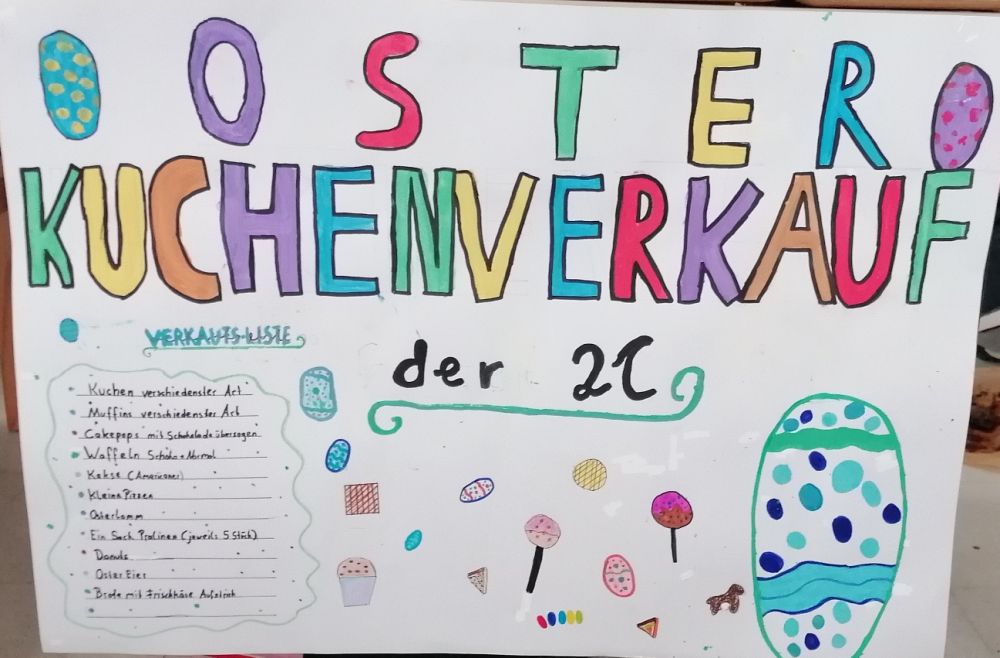 OSTER
KUCHENVERKAUF
der 2C
VERKAUFS-LISTE
Kuchen verschiedenster Art
Muffins verschiedenster Art
Cakepops mit Schokolade überzogen
Waffeln Schoko + Normal
Kekse (Amerikaner)
Kleine Pizzen
Osterlamm
Ein Sack Pralinen (jeweils 5 Stück)
Donuts
Oster Eier
Brote mit Frischkäse Aufstrich